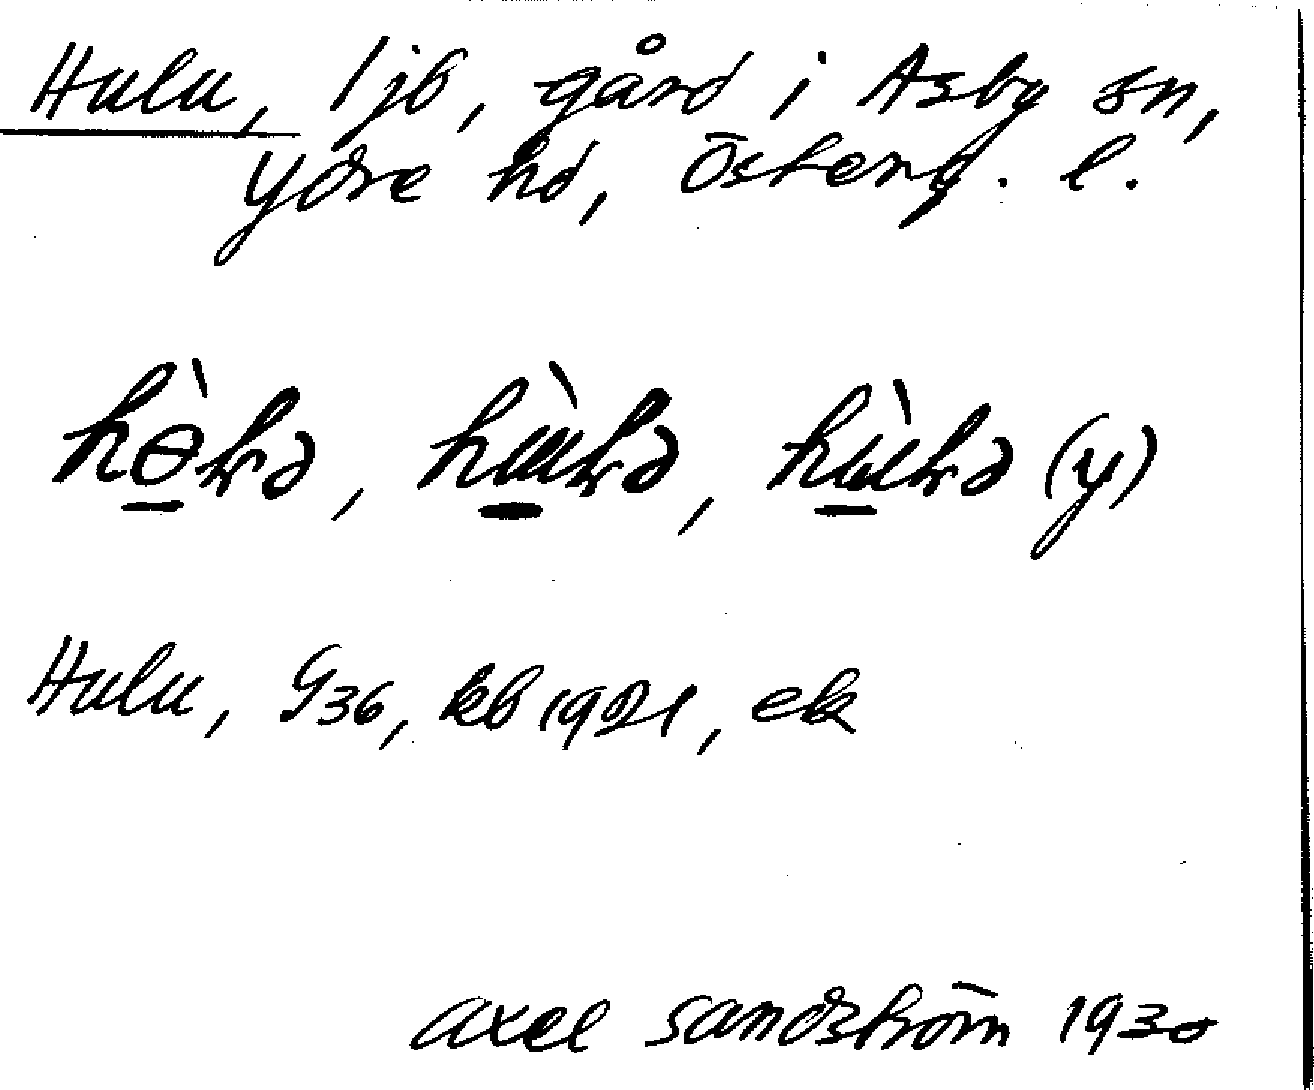 Hulu, 1 jb, gård i Asby sn,
Ydre hd, Österg. l.
(y)
Hulu, G36, kb 1921, ek
axel sandström 1930